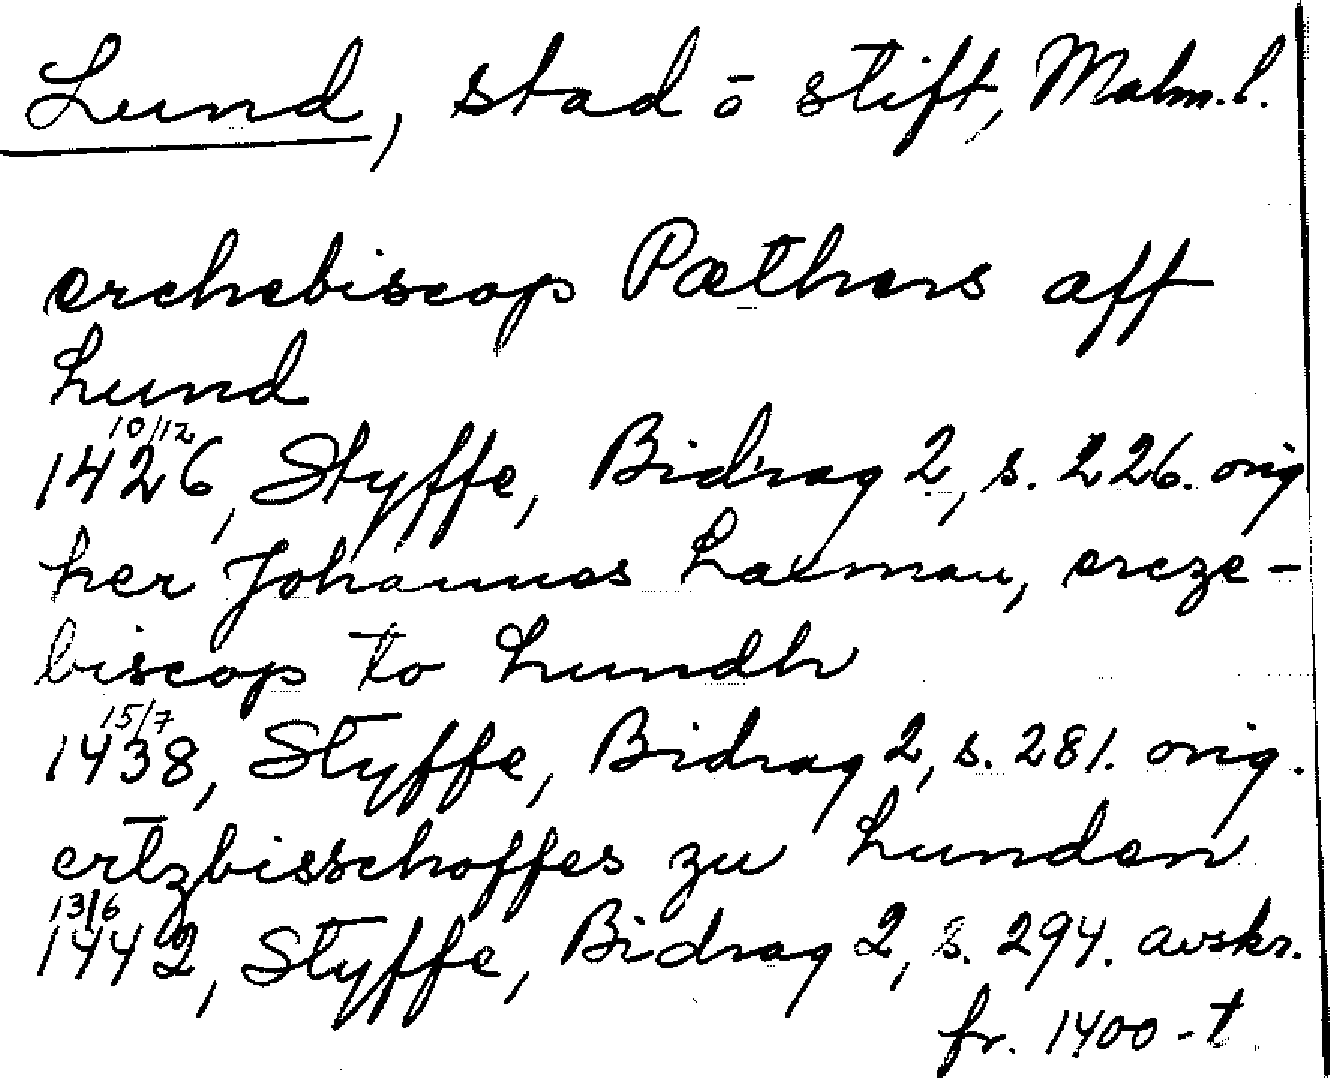 Lund, stad o stift, Malm. l.
erchebiscop Pæthers aff
Lund
10/12
1426, Styffe, Bidrag 2, s. 226. orig
her Johannes Laxman, ercze-
biscop to Lundh
15/7
1438, Styffe, Bidrag 2, s. 281. orig.
ertzbisschoffes zu Lunden
13/6
1442, Styffe, Bidrag 2, s. 294. avskr.
fr. 1400-t